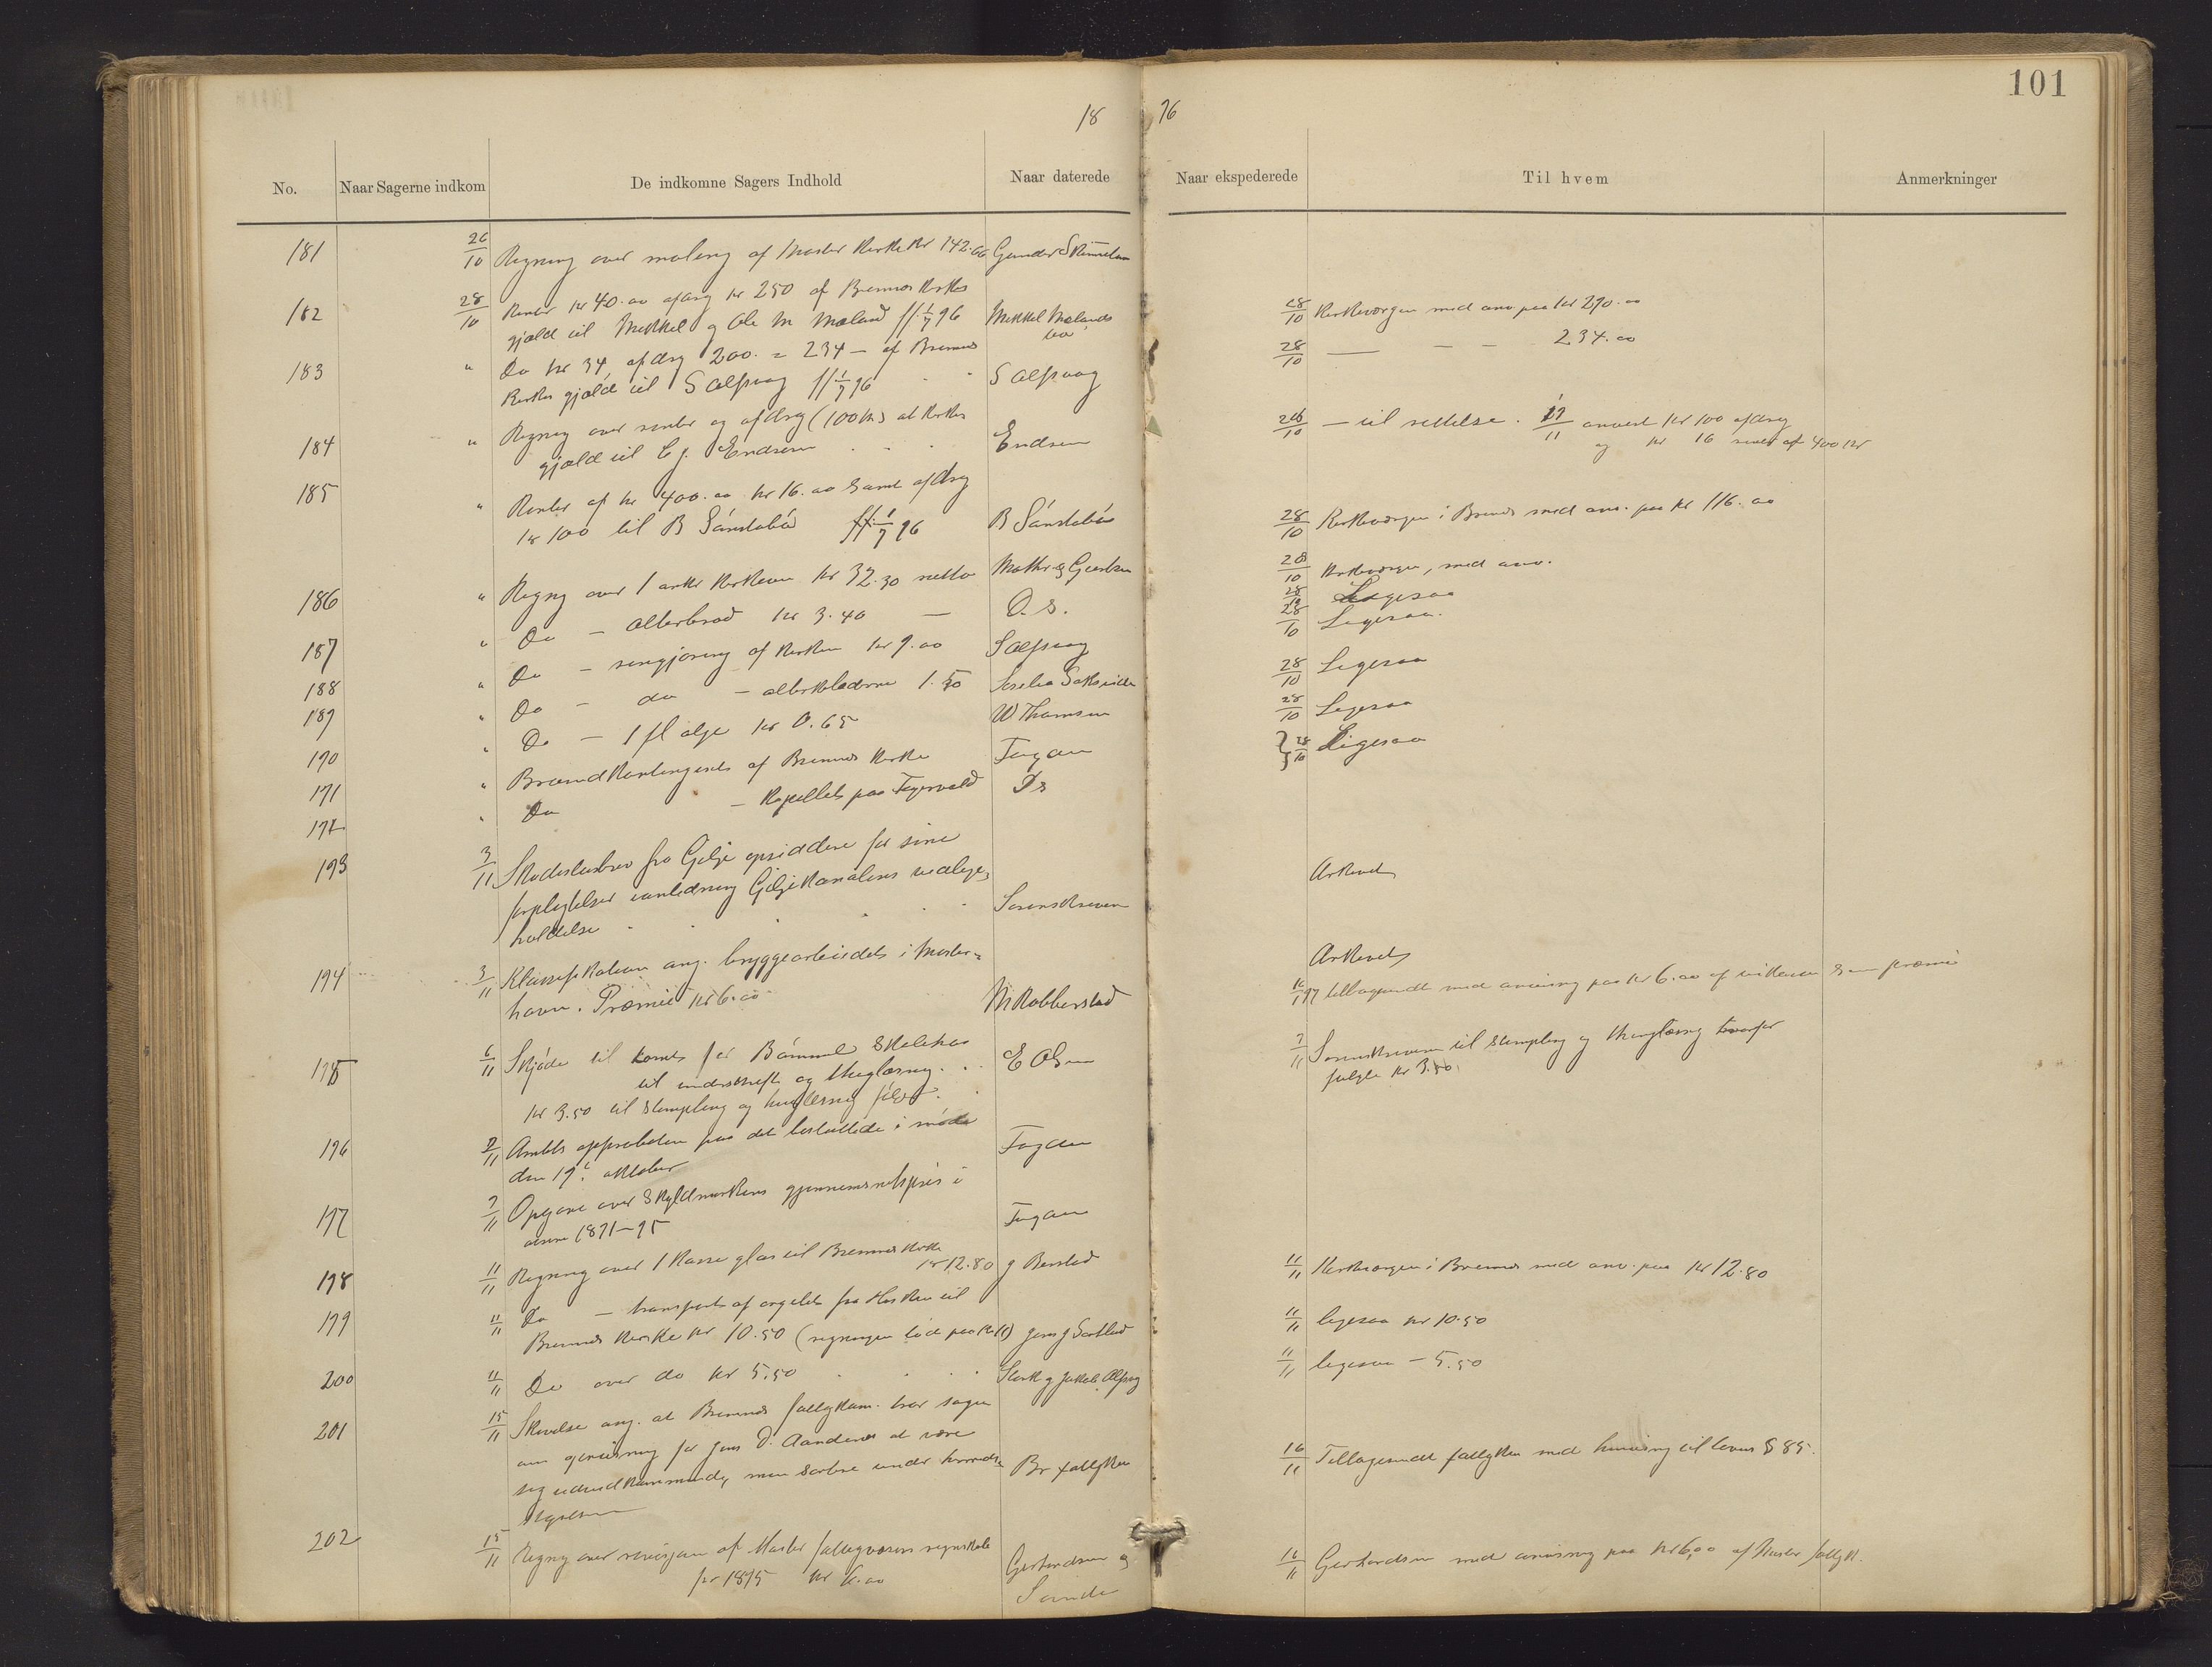 101
18 96
No.
Naar Sagerne indkom
De indkomne Sagers Indhold
Naar daterede
Naar ekspederede
Til hvem
Anmerkninger
181 26/10 Regning over maling af Moster Kirke Kr 142.66 Gunder
182 28/10 Renter kr 40.00 afdrag kr 250 af Bremnes Kirkes
gjæld til Mikkel og Ole M Mæland 1/7 96 Mikkel Mælands
28/10 Kirkevergen med anv paa kr 290.00
183 " Do kr 34, afdrag 200. = 234 — af Bremnes
Kirkes gjæld til S Alfsvaag 1/7 96 S Alfsvaag
28/10 — — — 234.00
184 " Regning over renter og afdrag (100 kr) at Kirkes
gjæld til E J. Endresen Endresen
28/10 — til rettelse. 17/11 anvist kr 100 afdrag
og kr 16 renter af 400 kr
185 " Renter af kr 400.00 kr 16.00 samt afdrag
kr 100 til B Sønstabø 1/7 96 B Sønstabø
28/10 Kirkevergen i Bremnes med anv. paa kr 116.00
186 " Regning over 1 anker Kirkevin kr 32.30 netto
28/10 Kirkevergen, med anv.
187 " Do — alterbrød kr 3.40 — D.s.
28/10 Ligesaa
188 " Do — rengjøring af Kirken kr 9.00 S Alfsvaag
28/10 Ligesaa.
189 " Do — do — alterklæderne 1.50
28/10 Ligesaa
190 " Do — 1 fl olje kr 0.65 W Thomsen
28/10 Ligesaa
191 " Brandkontingent af Bremnes Kirke Fogden
192 " Do — Kapellet paa Ds
28/10 Ligesaa
193 3/11 Skadesløsbrev fra Gilje opsiddere for sine
forpligtelser i anledning Giljekanalens vedlige-
holdelse Sorenskriveren
Arkivet
194 3/11 Klassifikation ang. bryggearbeidet i Moster-
havn. Præmie kr 6.00 M Robberstad
Arkivet
tilbagesendt med anvisning paa kr 6.00 af som præmie
195 6/11 Skjøde til tomt for Bømmel Skolehus
til underskrift og thinglæsning. E Olsen
kr 3.50 til stempling og thinglæsning følger.
7/11 Sorenskriveren til stempling og thinglæsning hvorfor
følger kr 3.50.
196 7/11 Amtets approbation paa det besluttede i møde
den 19. oktober Fogden
197 7/11 Opgave over Skyldmarkens gjennemsnitspris i
aarene 1891–95 Fogden
198 11/11 Regning over 1 Kasse glas til Bremnes Kirke
kr 12.80
11/11 Kirkevergen i Bremnes med anv. paa kr 12.80
199 11/11 Do — transport af orgelet fra til
Bremnes Kirke kr 10.50 (regningen lød paa kr 11)
11/11 ligesaa kr 10.50
200 11/11 Do over do kr 5.50
11/11 ligesaa — 5.50
201 15/11 Skrivelse ang. at Bremnes fattigkom. har sagen
om for Jens D. Aandenes at være
men sorterer under herreds-
styrelsen Br fattigkom
16/11 Tilbagesendt fattigkom med henvisning til lovens § 85.
202 15/11 Regning over revisjon af Moster fattigvæsens regnskab
for 1895 kr 6.00 Gerhardsen og
Sunde
16/11 Gerhardsen med anvisning paa kr 6,00 af Moster fattigk.